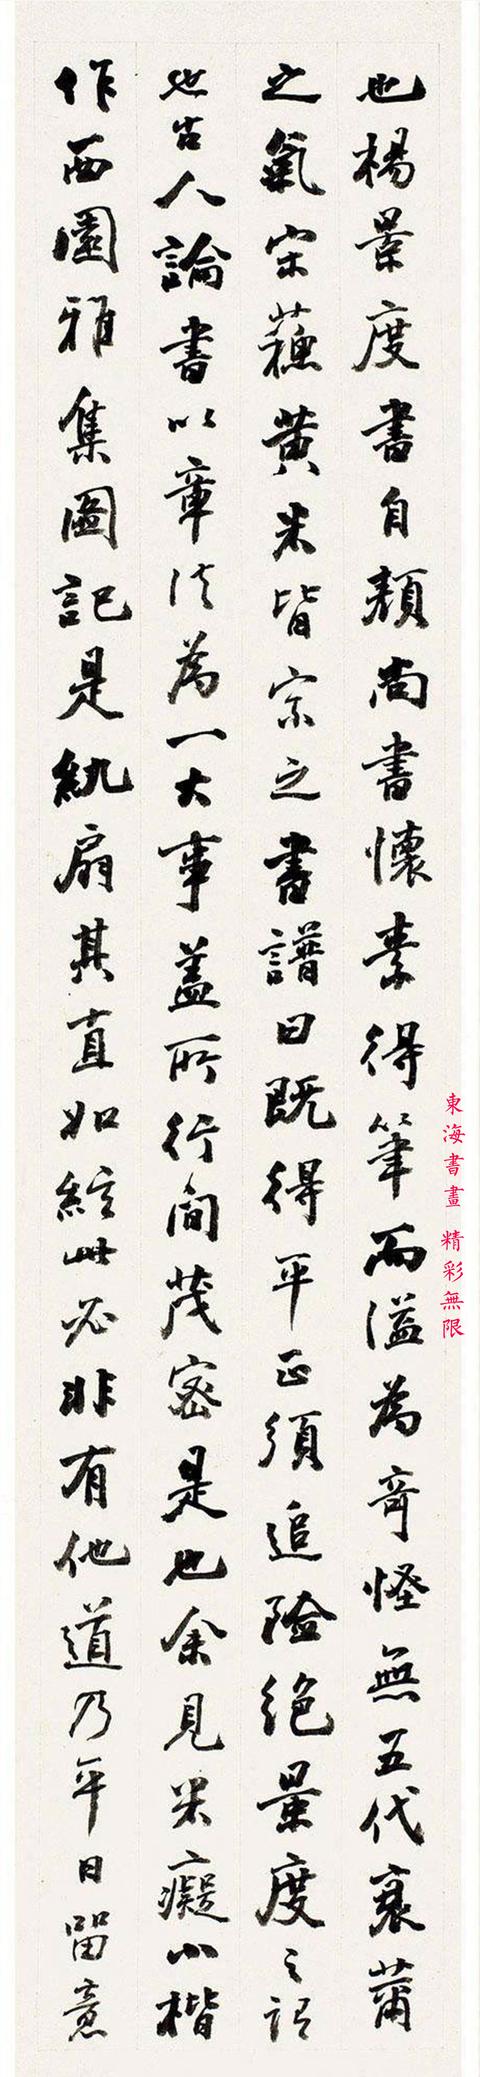 也楊景度書自顏尚書懷素得筆而溢為奇怪無五代衰薾
之氣宋蘇黃米皆宗之書譜曰既得平正須追險絕景度之謂
也古人論書以章法為一大事蓋所行間茂密是也余見米癡小楷
作西園雅集圖記是紈扇其直如絃此必非有他道乃平日留意
東海書畫 精彩無限